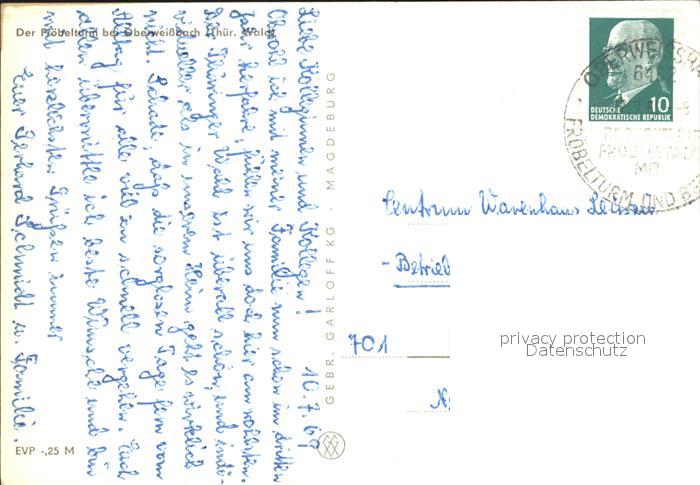 Der Fröbelturm bei Oberweißbach (Thür. Wald)
Liebe Kolleginnen und Kollegen! 10.7.69
Obwohl ich mit meiner Familie nun schon im dritten
Jahr herfahre, fühlen wir uns doch hier am wohlsten.
Der Thüringer Wald ist überall schön, und
als in unserem Heim geht es wirklich
nicht. Schade, daß die sorglosen Tage fern vom
Alltag für alle viel zu schnell vergehen. Euch
allen übermittle ich beste Wünsche und bin
mit herzlichsten Grüßen immer
Euer Gerhard Schmidt u. Familie.
EVP -,25 M
GEBR. GARLOFF KG - MAGDEBURG
DEUTSCHE 10
DEMOKRATISCHE REPUBLIK
OBERWEISSBACH
FRÖBELTURM UND
MIT
Centrum Warenhaus
- Betrieb
701
privacy protection
Datenschutz